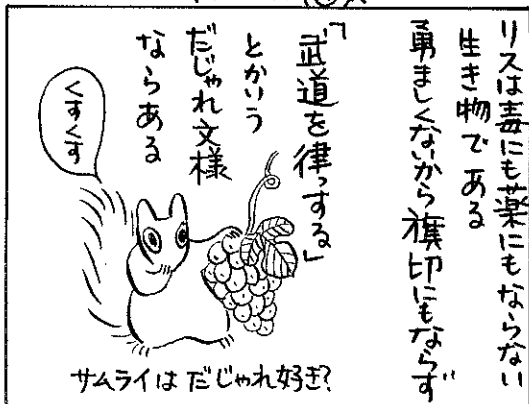 リスは毒にも薬にもならない
生き物である
勇ましくないから旗印にもならず
「武道を律っする」
とかいう
だじゃれ文様
ならある
くすくす
サムライはだじゃれ好き?